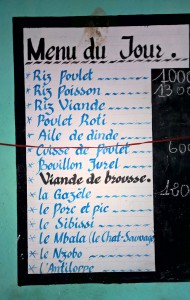 Menu du Jour.
* Riz Poulet 1000
* Riz Poisson 1300
* Riz Viande
* Poulet Roti
* Aile de dinde
* Cuisse de Poulet 600
* Bouillon Jurel
Viande de brousse.
* la Gazèle 180
* le Porc et pic
* le Sibissi
* le Mbala (le Chat-Sauvage
* le Nzobo
* l'Antiloppe